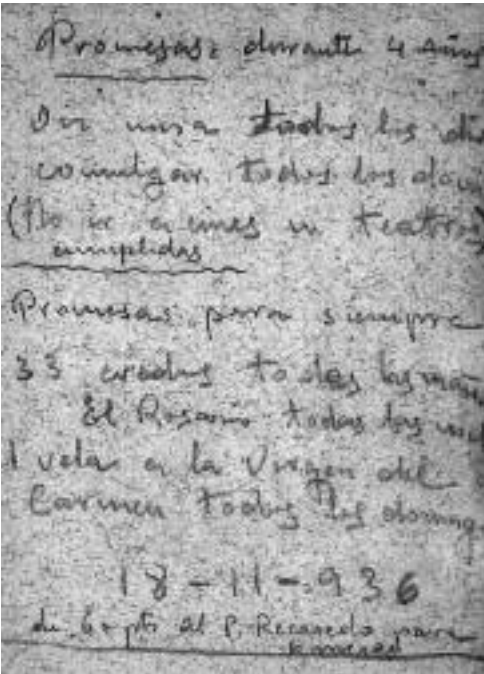 Promesas: durante 4 Años
Oir misa todos los
comulgar todos los
(No ir a cines ni teatros)
cumplidas
Promesas para siempre
33 credos todos las
El Rosario todas las
1 vela a la Virgen del
Carmen todos los doming
18-11-936
6 pts al P. Recaredo para